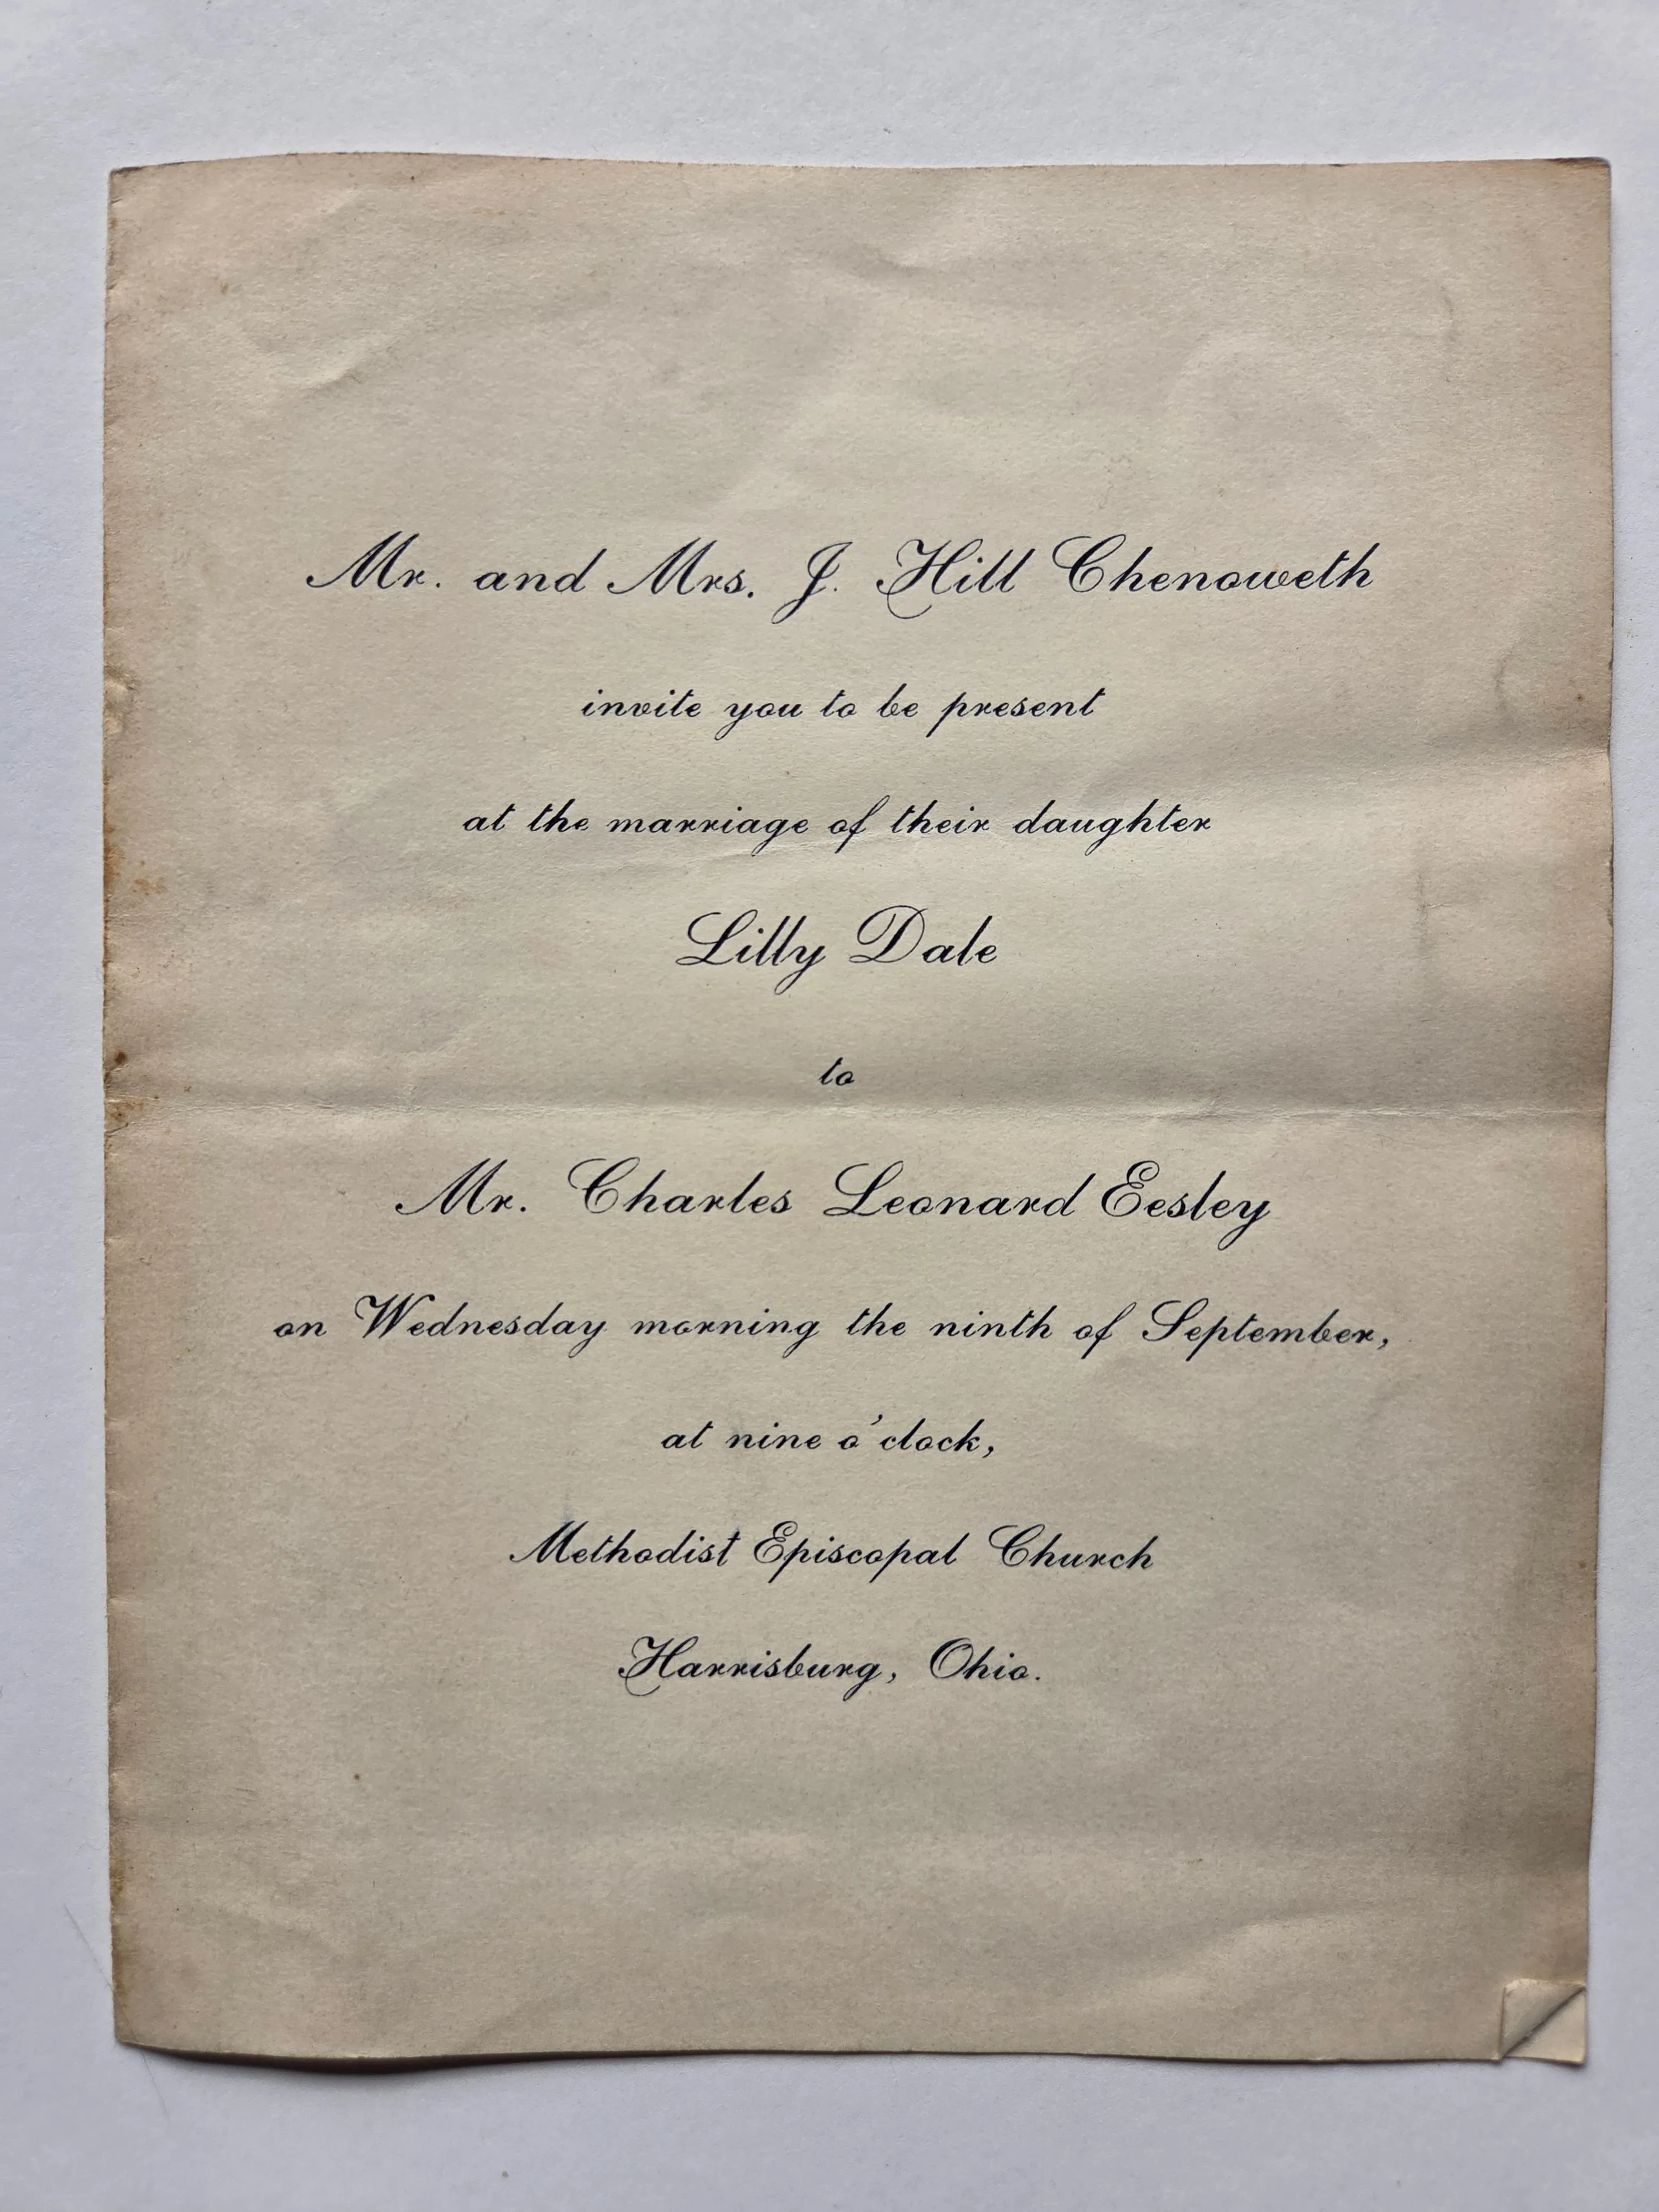 Mr. and Mrs. J. Hill Chenoweth
invite you to be present
at the marriage of their daughter
Lilly Dale
to
Mr. Charles Leonard Eesley
on Wednesday morning the ninth of September,
at nine o'clock,
Methodist Episcopal Church
Harrisburg, Ohio.